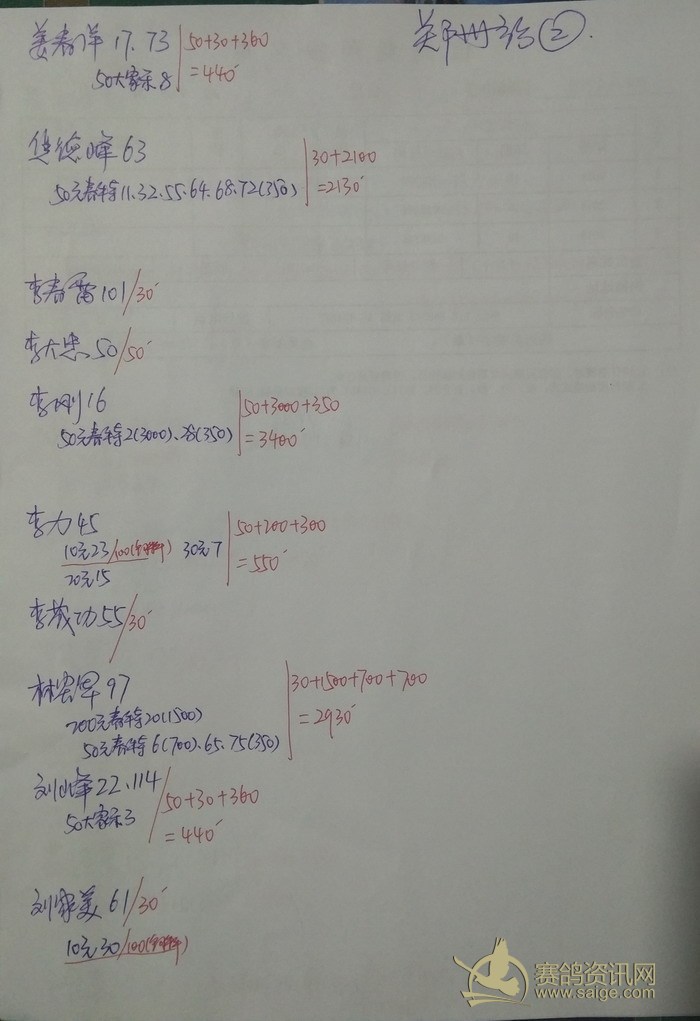 郑州站②.
姜春洋 17.73 50+30+360
50大家乐8 =440
德峰 63 30+2100
50元春特11.32.55.64.68.72(350) =2130
李春雷 101/30
李大忠 50/50
李刚 16 50+3000+350
50元春特2(3000).28(350) =3400
李力 45 50+200+300
10元23/100 30元7 =550
20元15
李成功 55/30
林宏军 97 30+1500+700+700
200元春特20(1500) =2930
50元春特6(700).65.75(350)
刘峰 22.114 50+30+360
50大家乐3 =440
刘家美 61/30
10元30/100
赛鸽资讯网
www.saige.com